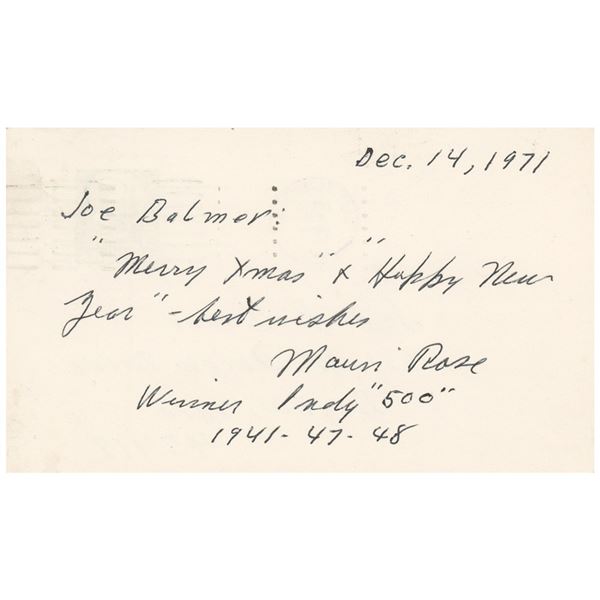 Dec. 14, 1971
Joe Balmer:
"Merry Xmas" & "Happy New
Year" - best wishes
Mauri Rose
Winner Indy "500"
1941-47-48